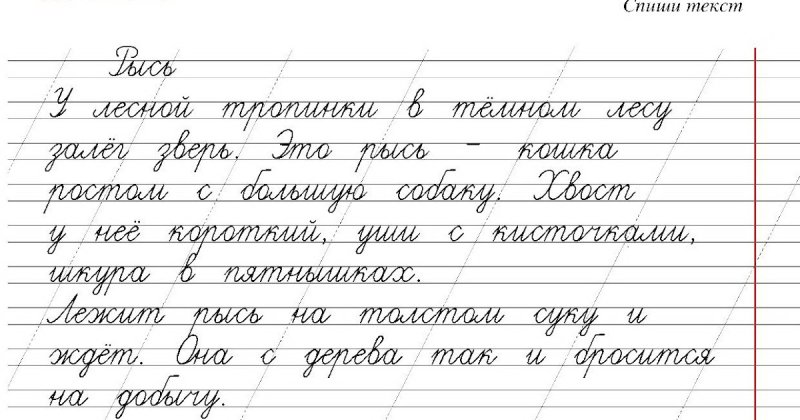 Спиши текст
Рысь
У лесной тропинки в тёмном лесу
залёг зверь. Это рысь – кошка
ростом с большую собаку. Хвост
у неё короткий, уши с кисточками,
шкура в пятнышках.
Лежит рысь на толстом суку и
ждёт. Она с дерева так и бросится
на добычу.